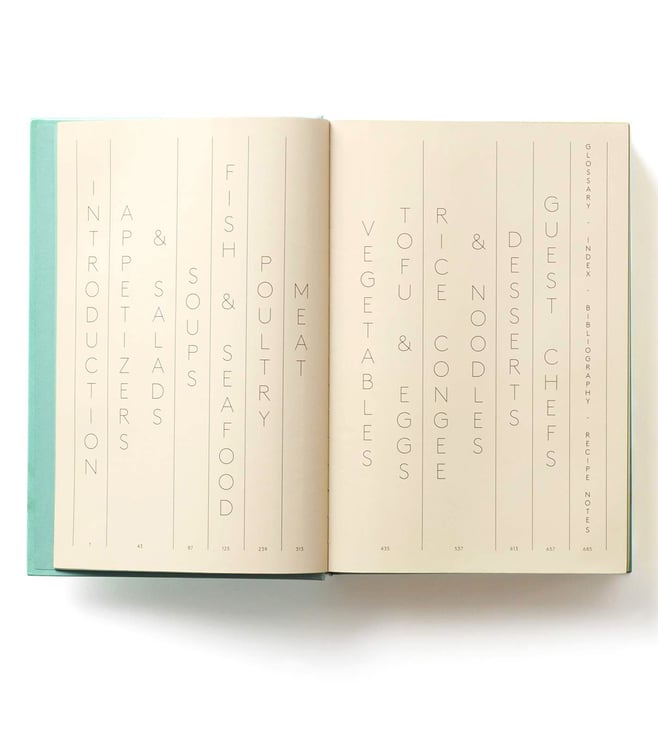 INTRODUCTION
APPETIZERS
& SALADS
SOUPS
FISH & SEAFOOD
POULTRY
MEAT
43
87
125
239
313
VEGETABLES
TOFU & EGGS
RICE CONGEE
& NOODLES
DESSERTS
GUEST CHEFS
GLOSSARY - INDEX - BIBLIOGRAPHY - RECIPE NOTES
435
537
613
657
685